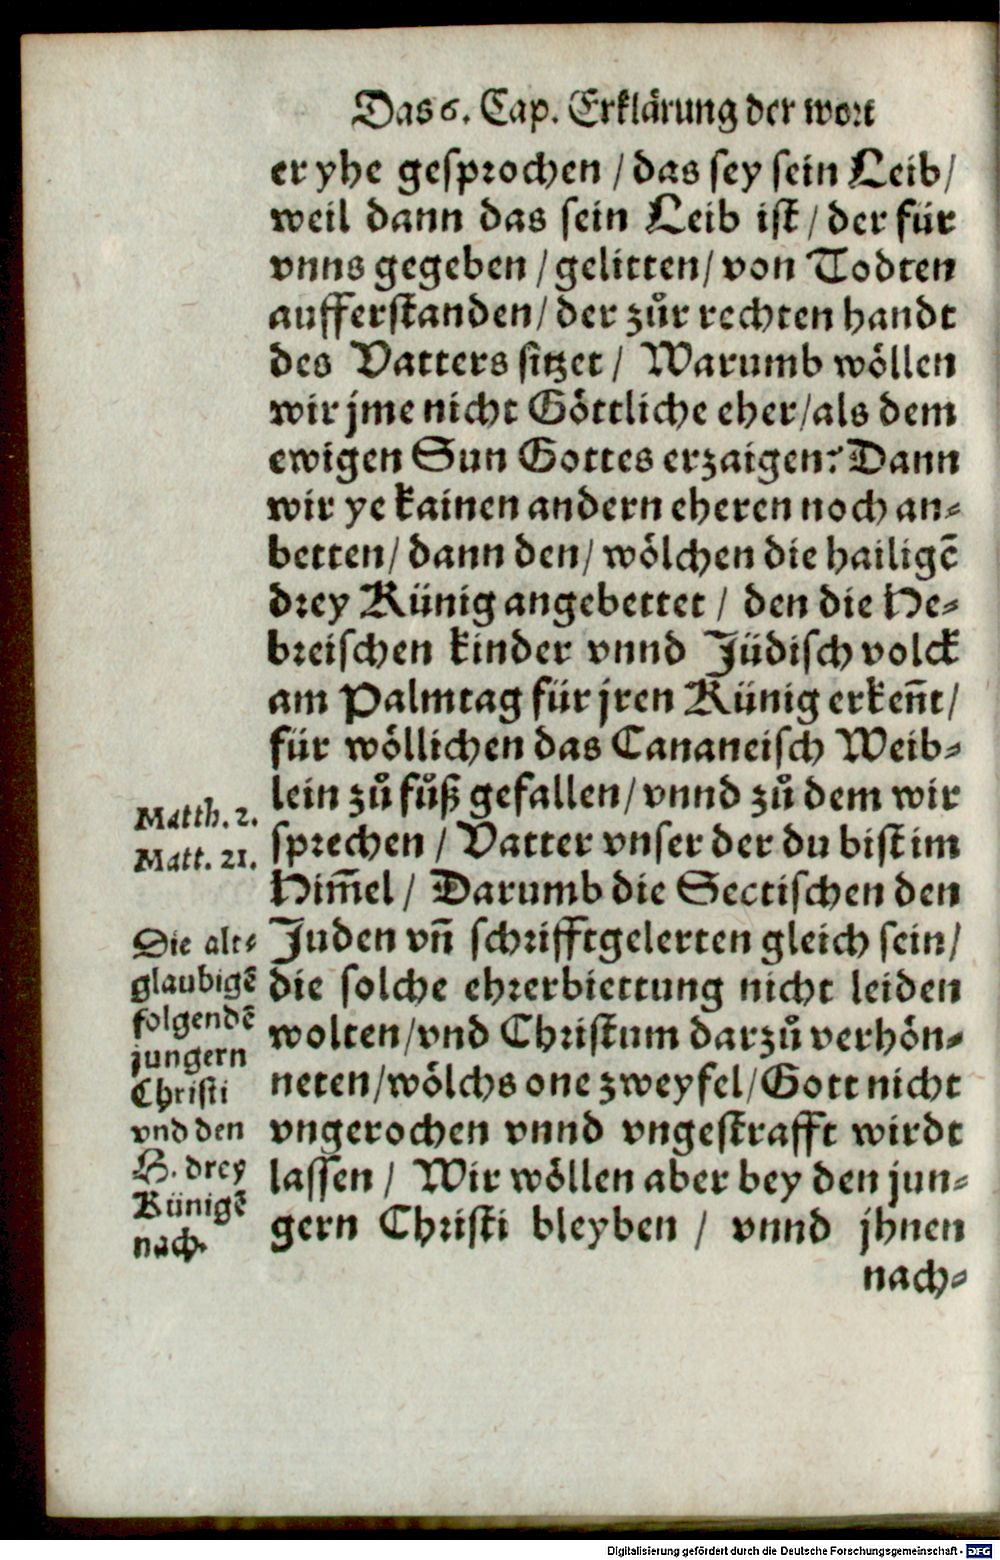 Das 6. Cap. Erklärung der wort
er yhe gesprochen / das sey sein Leib /
weil dann das sein Leib ist / der für
vnns gegeben / gelitten / von Todten
aufferstanden / der zůr rechten handt
des Vatters sitzet / Warumb wöllen
wir jme nicht Göttliche eher / als dem
ewigen Sun Gottes erzaigen? Dann
wir ye kainen andern eheren noch an⸗
betten / dann den / wölchen die hailigẽ
drey Künig angebettet / den die He⸗
breischen kinder vnnd Jüdisch volck
am Palmtag für jren Künig erkeñt /
für wöllichen das Cananeisch Weib⸗
lein zů fůß gefallen / vnnd zů dem wir
sprechen / Vatter vnser der du bist im
Him̃el / Darumb die Sectischen den
Juden vñ schrifftgelerten gleich sein /
die solche ehrerbiettung nicht leiden
wolten / vnd Christum darzů verhön⸗
neten / wölchs one zweyfel / Gott nicht
vngerochen vnnd vngestrafft wirdt
lassen / Wir wöllen aber bey den jun⸗
gern Christi bleyben / vnnd jhnen
nach⸗
Matth. 2.
Matt. 21.
Die alt⸗
glaubigẽ
folgendẽ
jungern
Christi
vnd den
H. drey
Künigẽ
nach.
Digitalisierung gefördert durch die Deutsche Forschungsgemeinschaft - DFG